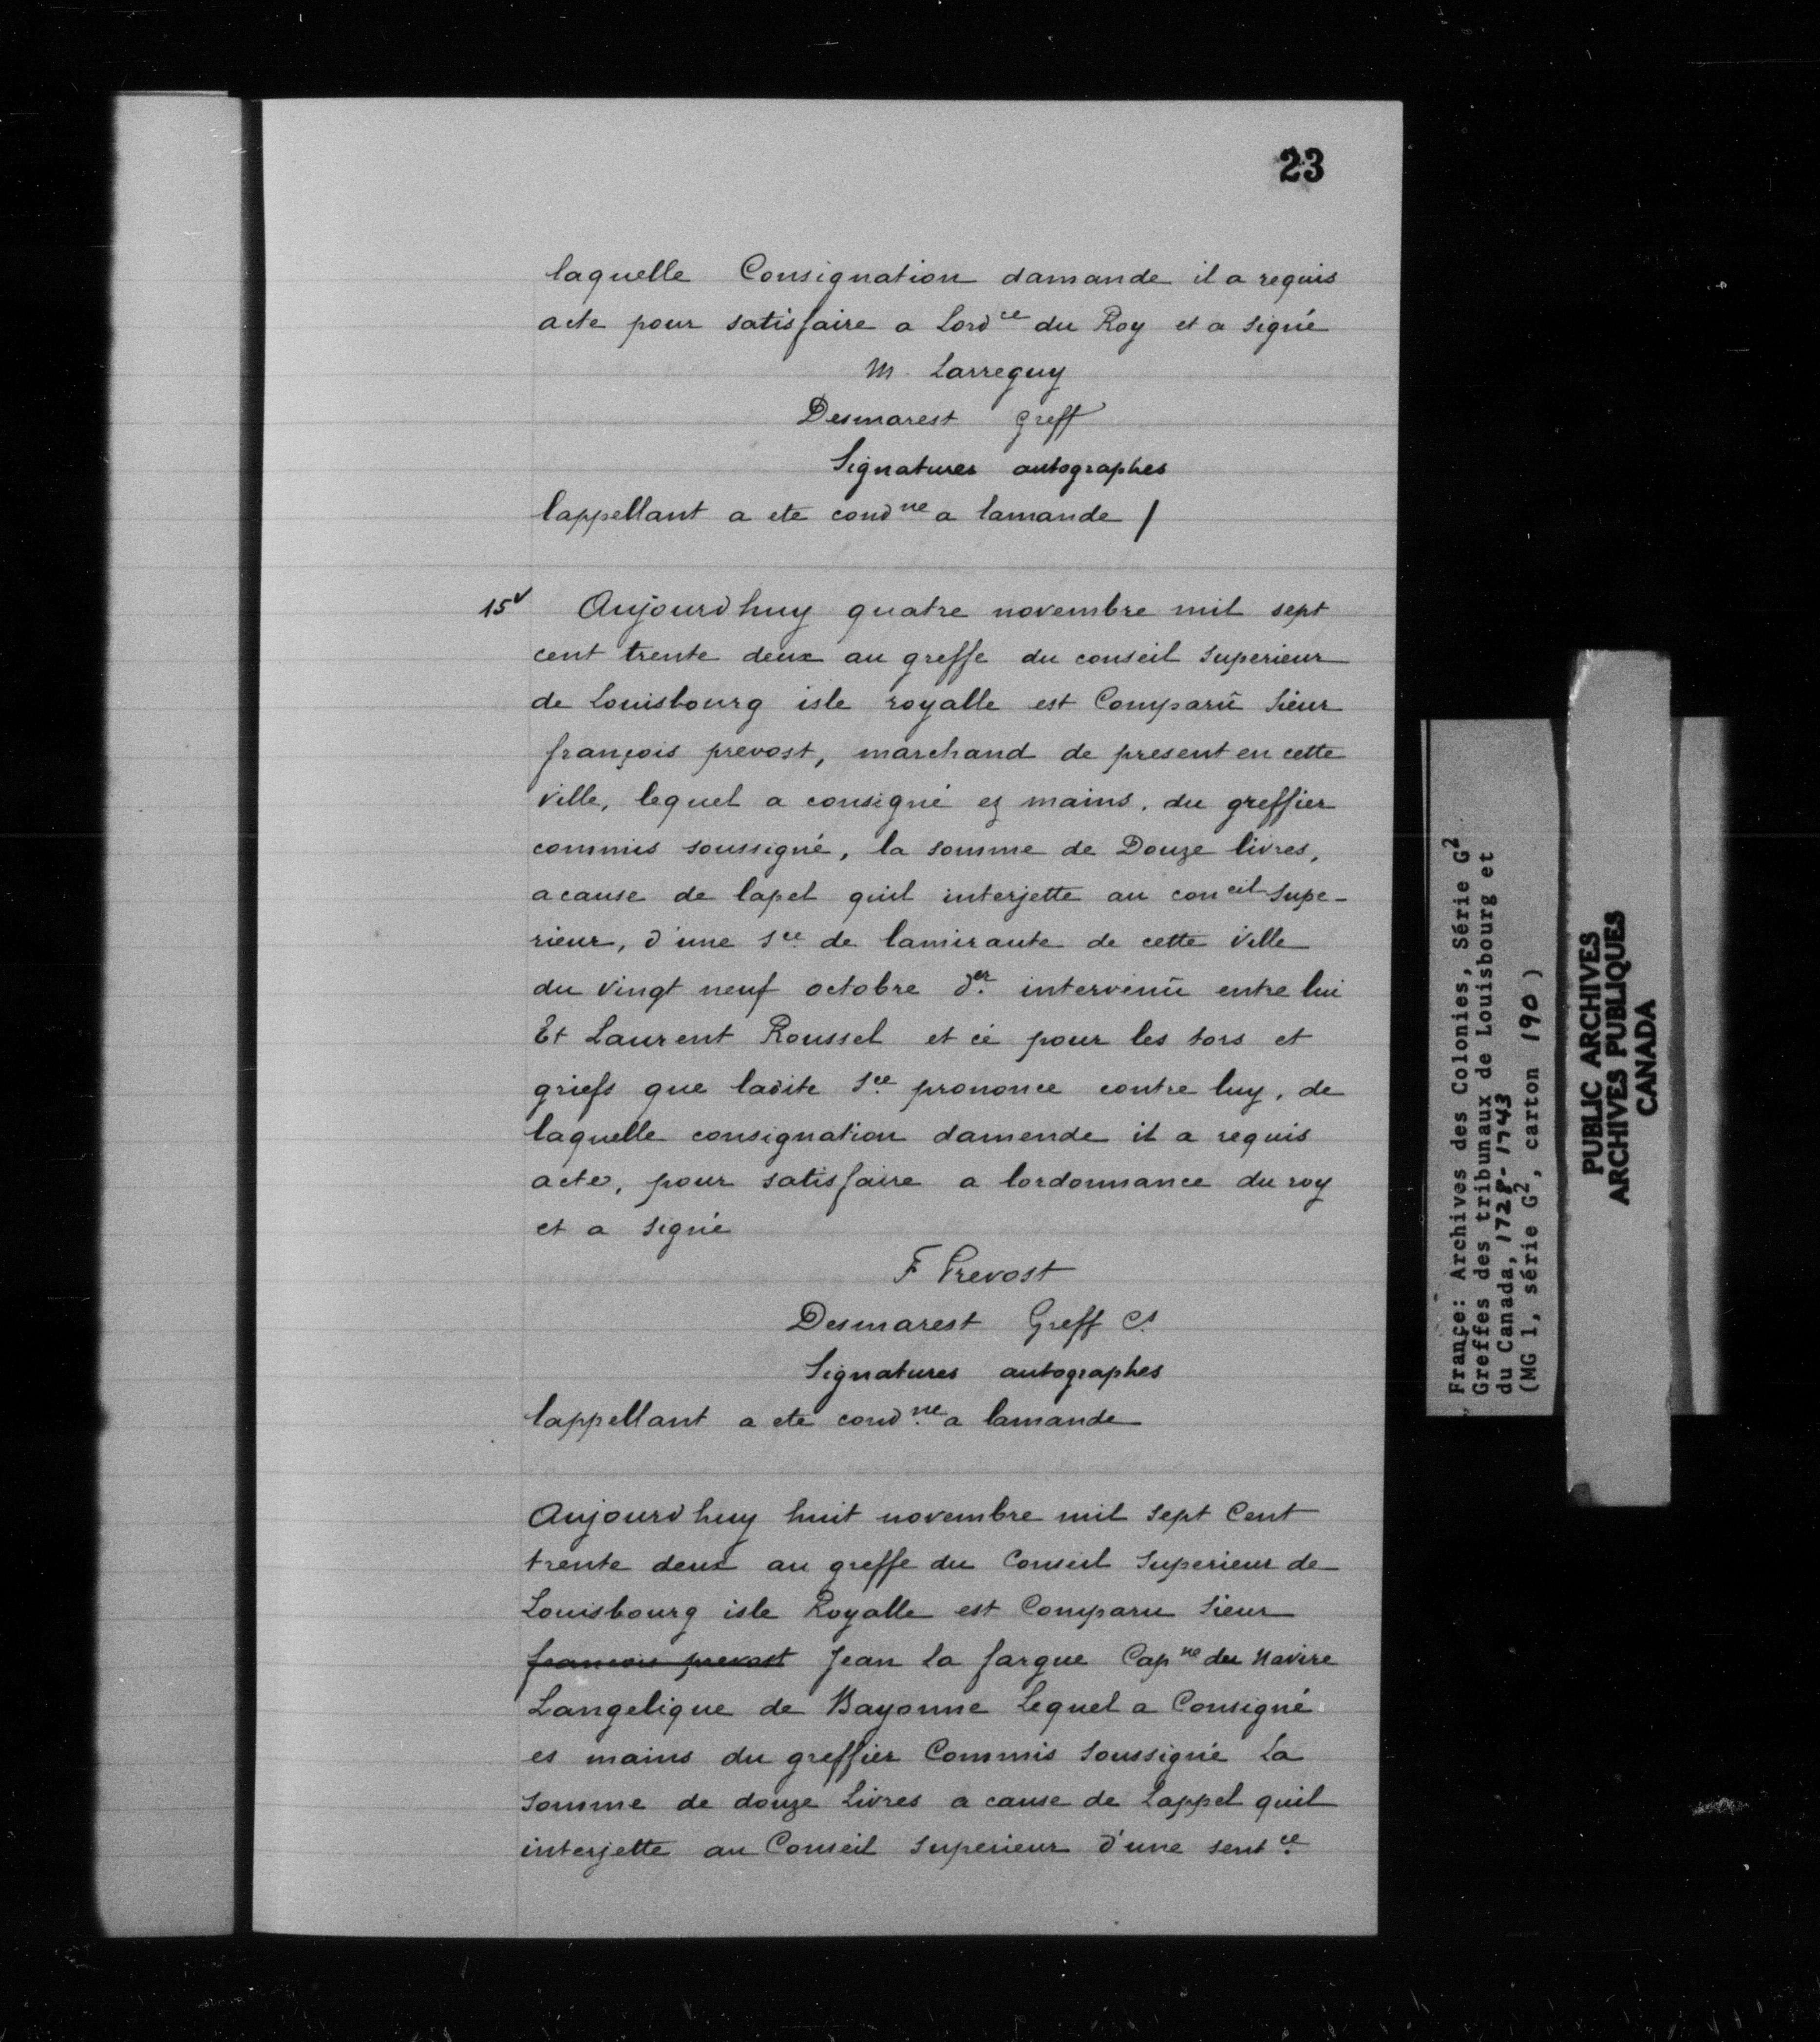 23
laquelle Consignation damande il a requis
acte pour satisfaire a Lord ce du Roy et a signé
M. Larreguy
Desmarest greff
Signatures autographes
lappellant a ete cond ne a lamande /
15v Aujourd huy quatre novembre mil sept
cent trente deux au greffe du conseil Superieur
de Louisbourg isle royalle est Comparû Sieur
françois prevost, marchand de present en cette
ville, lequel a consigné ez mains, du greffier
commis soussigné, la somme de Douze livres,
acause de lapel quil interjette au con eil Supe-
rieur, d'une sce de lamiraute de cette Ville
du vingt neuf octobre der intervenû entre lui
Et Laurent Roussel et cé pour les tors et
griefs que ladite sce prononce contre luy, de
laquelle consignation damende il a requis
acte, pour satisfaire a lordonnance du roy
et a signé
F Prevost
Desmarest Greff Cs
Signatures autographes
lappellant a ete cond ne a lamande
Aujourd huy huit novembre mil sept Cent
trente deux au greffe du Conseil Superieur de
Louisbourg isle Royalle est Comparu Sieur
francois prevost Jean la fargue Cap ne du Navire
Langelique de Bayonne Lequel a Consigné
es mains du greffier Commis Soussigné La
Somme de douze Livres a cause de Lappel quil
interjette au Conseil Superieur d'une sent ce
France: Archives des Colonies, Série G2
Greffes des tribunaux de Louisbourg et
du Canada, 1728-1743
(MG 1, série G2, carton 190)
PUBLIC ARCHIVES
ARCHIVES PUBLIQUES
CANADA